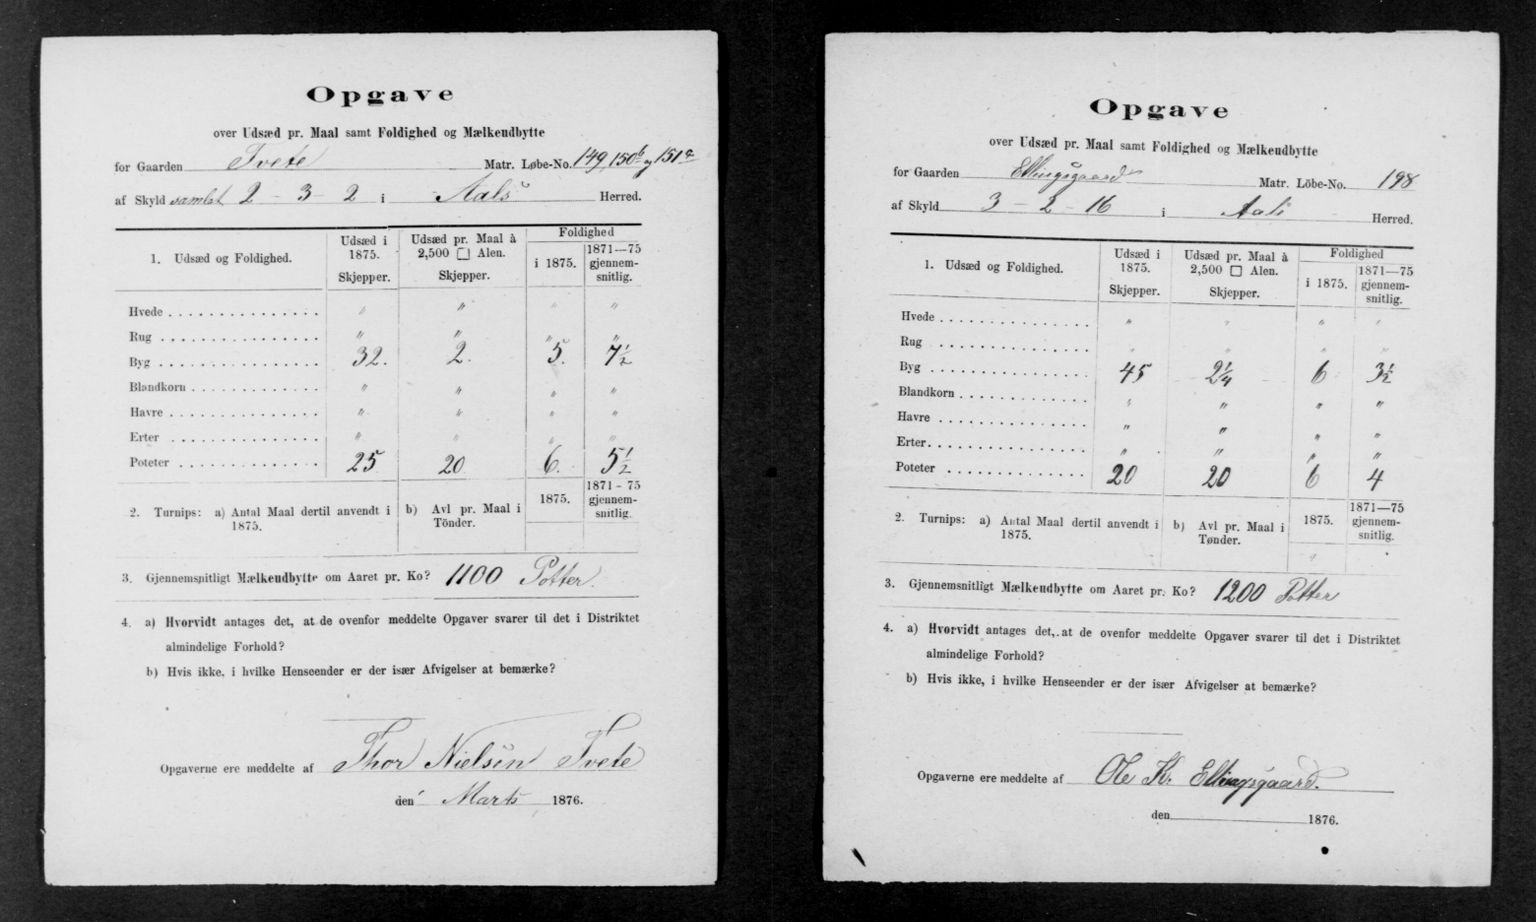 Opgave
over Udsæd pr. Maal samt Foldighed og Mælkeudbytte
for Gaarden Tvete Matr. Løbe-No. 149, 150b og 151a
af Skyld samlet 2 - 3 - 2 i Aals Herred.
1. Udsæd og Foldighed.
Udsæd i 1875. Skjepper.
Udsæd pr. Maal à 2,500 □ Alen. Skjepper.
Foldighed
i 1875.
1871—75 gjennem-snitlig.
Hvede . . . . . . . . . . . . . . . " " " "
Rug . . . . . . . . . . . . . . . " " " "
Byg . . . . . . . . . . . . . . . 32. 2. 5. 7½
Blandkorn . . . . . . . . . . . . . " " " "
Havre . . . . . . . . . . . . . . . " " " "
Erter . . . . . . . . . . . . . . . " " " "
Poteter . . . . . . . . . . . . . . 25 20 6. 5½
2. Turnips: a) Antal Maal dertil anvendt i 1875.
b) Avl pr. Maal i Tönder.
1875.
1871 - 75 gjennem-snitlig.
3. Gjennemsnitligt Mælkeudbytte om Aaret pr. Ko? 1100 Potter.
4. a) Hvorvidt antages det, at de ovenfor meddelte Opgaver svarer til det i Distriktet
almindelige Forhold?
b) Hvis ikke, i hvilke Henseender er der især Afvigelser at bemærke?
Opgaverne ere meddelte af Thor Nielsen Tvete
den Marts 1876.
Opgave
over Udsæd pr. Maal samt Foldighed og Mælkeudbytte
for Gaarden Ellingsgaard Matr. Löbe-No. 198
af Skyld 3 - 2 - 16 i Aals Herred.
1. Udsæd og Foldighed.
Udsæd i 1875. Skjepper.
Udsæd pr. Maal à 2,500 □ Alen. Skjepper.
Foldighed
i 1875.
1871—75 gjennem-snitlig.
Hvede . . . . . . . . . . . . . . . " " " "
Rug . . . . . . . . . . . . . . . " " " "
Byg . . . . . . . . . . . . . . . 45 2¼ 6 3½
Blandkorn . . . . . . . . . . . . . " " " "
Havre . . . . . . . . . . . . . . . " " " "
Erter . . . . . . . . . . . . . . . " " " "
Poteter . . . . . . . . . . . . . . 20 20 6 4
2. Turnips: a) Antal Maal dertil anvendt i 1875.
b) Avl pr. Maal i Tønder.
1875.
1871—75 gjennem-snitlig.
"
3. Gjennemsnitligt Mælkeudbytte om Aaret pr. Ko? 1200 Potter
4. a) Hvorvidt antages det, at de ovenfor meddelte Opgaver svarer til det i Distriktet
almindelige Forhold?
b) Hvis ikke, i hvilke Henseender er der især Afvigelser at bemærke?
Opgaverne ere meddelte af Ole Kr. Ellingsgaard.
den 1876.